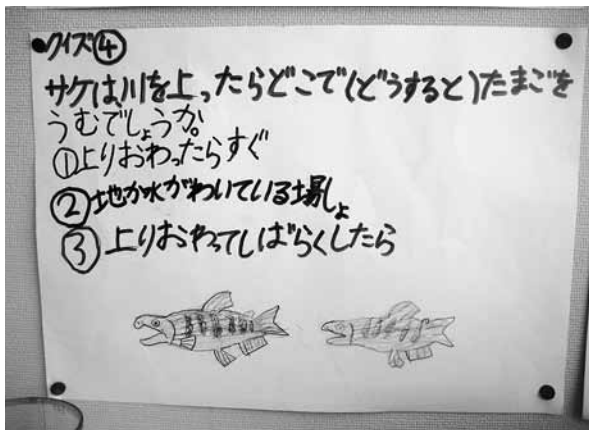 クイズ④
サケは川を上ったらどこで(どうすると)たまごを
うむでしょうか。
①上りおわったらすぐ
②地か水がわいている場しょ
③上りおわってしばらくしたら